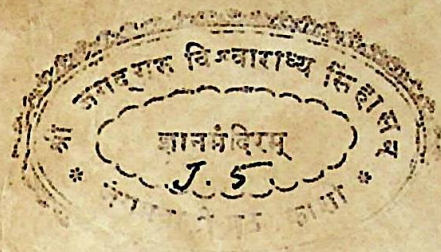 श्री जगद्गुरु विश्वाराध्य सिंहासन
ज्ञानमंदिरम्
J. 5